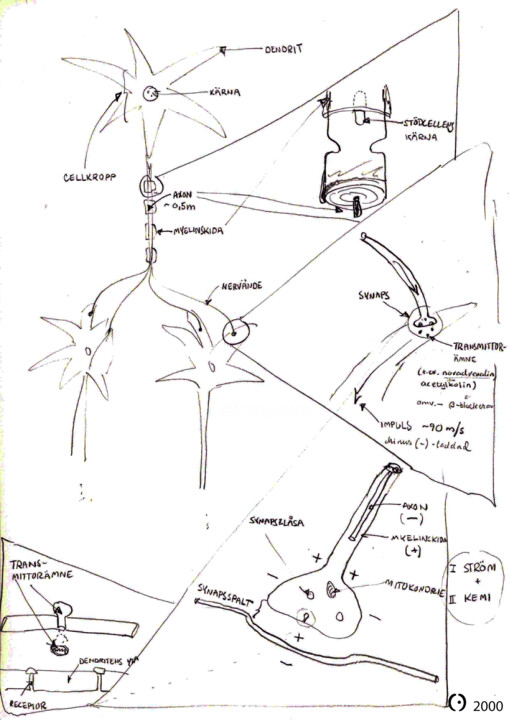 DENDRIT
KÄRNA
CELLKROPP
STÖDCELLENS
KÄRNA
AXON
~0,5m
MYELINSKIDA
NERVÄNDE
SYNAPS
TRANSMITTOR-
ÄMNE
(t.ex. noradrenalin,
acetylkolin)
β-blockerare
IMPULS ~90 m/s
minus (-)-laddad
SYNAPSBLÅSA
AXON
(-)
MYELINSKIDA
(+)
MITOKONDRIE
SYNAPSSPALT
+
-
+
-
-
+
-
I STRÖM
+
II KEMI
TRANS-
MITTORÄMNE
DENDRITENS YTA
RECEPTOR
2000